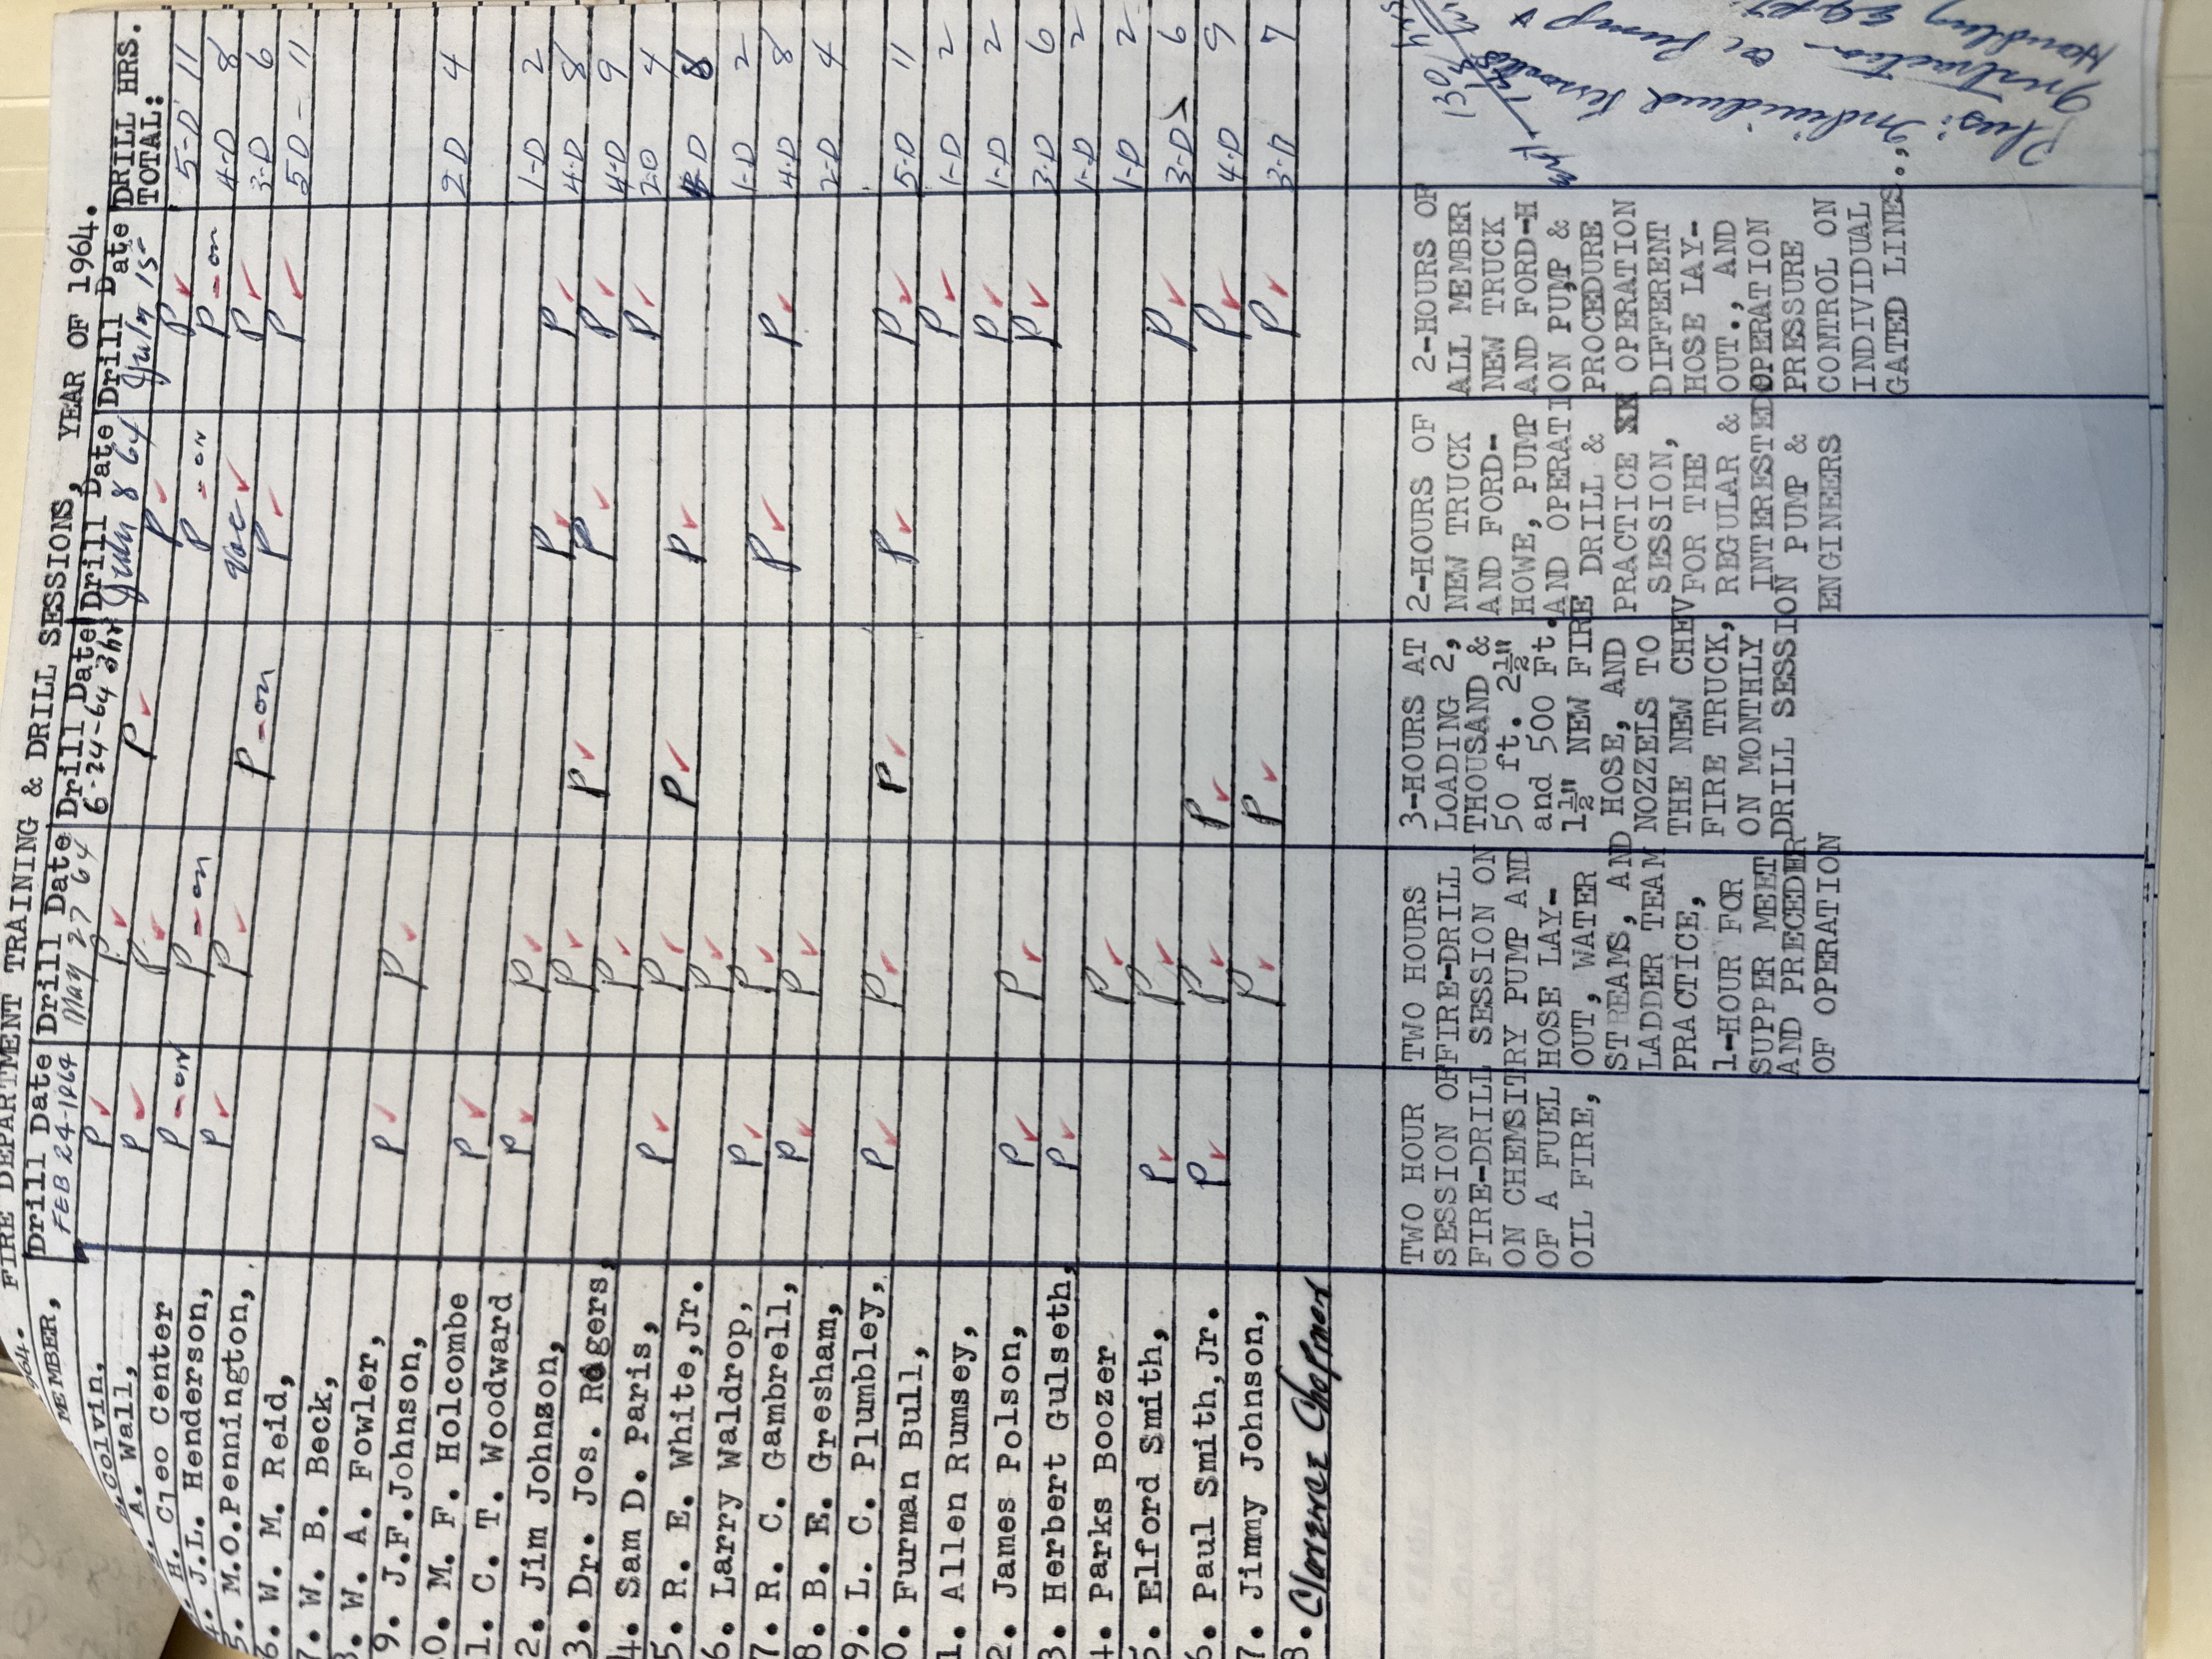 FIRE DEPARTMENT TRAINING & DRILL SESSIONS, YEAR OF 1964.
MEMBER, Drill Date Drill Date Drill Date Drill Date Drill Date DRILL HRS. TOTAL:
FEB 24-1964 May 27 64 6-24-64 3hr July 8 64 July 15
Colvin, P ✓ P ✓ P ✓ P ✓ P ✓ 5-D 11
A. Wall, P ✓ P ✓ P - on P - on 4-D 8
H. Cleo Center P - on P - on Vac ✓ P ✓ 3-D 6
4. J.L. Henderson, P ✓ P ✓ P - on P ✓ P ✓ 5D - 11
5. M.O.Pennington,
6. W. M. Reid,
7. W. B. Beck,
8. W. A. Fowler, P ✓ P ✓ 2D 4
9. J.F.Johnson,
0. M. F. Holcombe P ✓ 1-D 2
1. C. T. Woodward P ✓ P ✓ P ✓ P ✓ 4-D 8
2. Jim Johnson, P ✓ P ✓ P ✓ P ✓ 4-D 9
3. Dr. Jos. Rogers, P ✓ P ✓ 2-D 4
4. Sam D. Paris, P ✓ P ✓ P ✓ P ✓ D 8
5. R. E. White,Jr. P ✓ 1-D 2
6. Larry Waldrop, P ✓ P ✓ P ✓ P ✓ 4-D 8
7. R. C. Gambrell, P ✓ P ✓ 2-D 4
8. B. E. Gresham,
9. L. C. Plumbley, P ✓ P ✓ P ✓ P ✓ P ✓ 5-D 11
0. Furman Bull, P ✓ 1-D 2
1. Allen Rumsey, P ✓ 1-D 2
2. James Polson, P ✓ P ✓ P ✓ 3-D 6
3. Herbert Gulseth, P ✓ 1-D 2
4. Parks Boozer P ✓ 1-D 2
5. Elford Smith, P ✓ P ✓ P ✓ 3-D 6
6. Paul Smith,Jr. P ✓ P ✓ P ✓ P ✓ 4-D 9
7. Jimmy Johnson, P ✓ P ✓ P ✓ 3-D 7
8. Clarence Chapman
TWO HOUR
SESSION OF
FIRE-DRILL
ON CHEMSITRY
OF A FUEL
OIL FIRE,
TWO HOURS
FIRE-DRILL
SESSION ON
PUMP AND
HOSE LAY-
OUT, WATER
STREAMS, AND
LADDER TEAM
PRACTICE,
1-HOUR FOR
SUPPER MEET
AND PRECEDER
OF OPERATION
3-HOURS AT
LOADING 2,
THOUSAND &
50 ft. 2½"
and 500 Ft.
1½" NEW FIRE
HOSE, AND
NOZZELS TO
THE NEW CHEV
FIRE TRUCK,
ON MONTHLY
DRILL SESSION
2-HOURS OF
NEW TRUCK
AND FORD-
HOWE, PUMP
AND OPERATION
DRILL &
PRACTICE
SESSION,
FOR THE
REGULAR &
INTERESTED
PUMP &
ENGINEERS
2-HOURS OF
ALL MEMBER
NEW TRUCK
AND FORD-H
PUMP &
PROCEDURE
OPERATION
DIFFERENT
HOSE LAY-
OUT., AND
OPERATION
PRESSURE
CONTROL ON
INDIVIDUAL
GATED LINES.,
130
Plus: Individual Session
Instruction on Pump &
Handling Eqpt.